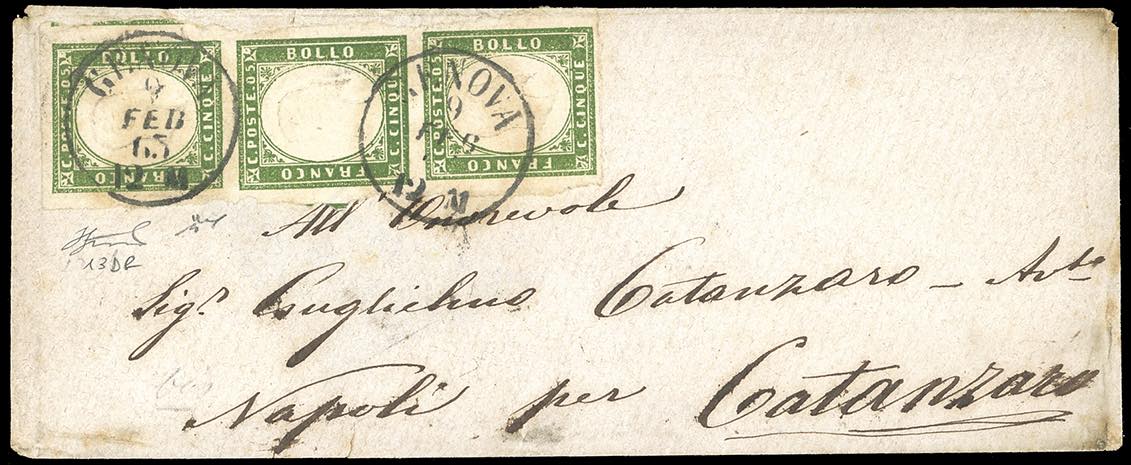 BOLLO
C. POSTE. 05
C. CINQUE
FRANCO
BOLLO
C. POSTE. 05
C. CINQUE
FRANCO
BOLLO
C. POSTE. 05
C. CINQUE
FRANCO
GENOVA
9
FEB
65
12 M
GENOVA
9
FEB
12 M
13DR
All' Onorevole
Sigr. Guglielmo Catanzaro - Avto
Napoli per Catanzaro